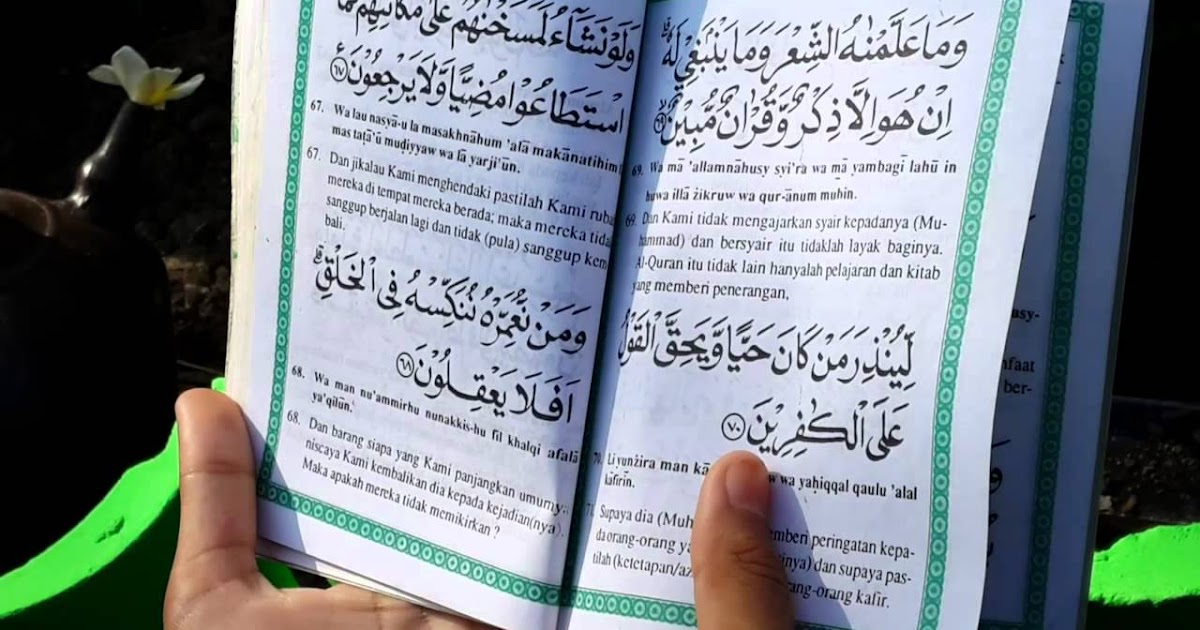 وَلَوْ نَشَآءُ لَمَسَخْنٰهُمْ عَلٰى مَكَانَتِهِمْ فَمَا
اسْتَطَاعُوْا مُضِيًّا وَّلَا يَرْجِعُوْنَ ۝٦٧
67. Wa lau nasyā-u la masakhnāhum 'alā makānatihim
mas taṭā'ū muḍiyyaw wa lā yarji'ūn.
67. Dan jikalau Kami menghendaki pastilah Kami ruba
mereka di tempat mereka berada; maka mereka tida
sanggup berjalan lagi dan tidak (pula) sanggup kem
bali.
وَمَنْ نُّعَمِّرْهُ نُنَكِّسْهُ فِى الْخَلْقِۗ
اَفَلَا يَعْقِلُوْنَ ۝٦٨
68. Wa man nu'ammirhu nunakkis-hu fil khalqi afalā
ya'qilūn.
68. Dan barang siapa yang Kami panjangkan umurny
niscaya Kami kembalikan dia kepada kejadian(nya).
Maka apakah mereka tidak memikirkan ?
وَمَا عَلَّمْنٰهُ الشِّعْرَ وَمَا يَنْبَغِيْ لَهٗۗ
اِنْ هُوَ اِلَّا ذِكْرٌ وَّقُرْاٰنٌ مُّبِيْنٌۙ ۝٦٩
69. Wa mā 'allamnāhusy syi'ra wa mā yambagī lahū in
huwa illā żikruw wa qur-ānum muhin.
69. Dan Kami tidak mengajarkan syair kepadanya (Mu-
hammad) dan bersyair itu tidaklah layak baginya.
Al-Quran itu tidak lain hanyalah pelajaran dan kitab
yang memberi penerangan,
لِّيُنْذِرَ مَنْ كَانَ حَيًّا وَّيَحِقَّ الْقَوْلُ
عَلَى الْكٰفِرِيْنَ ۝٧٠
70. Li yunżira man kā w wa yaḥiqqal qaulu 'alal
kāfirīn.
Supaya dia (Muh emberi peringatan kepa-
da orang-orang ya inya) dan supaya pas-
tilah (ketetapan/az rang-orang kafir.
asy-
faat
ber-